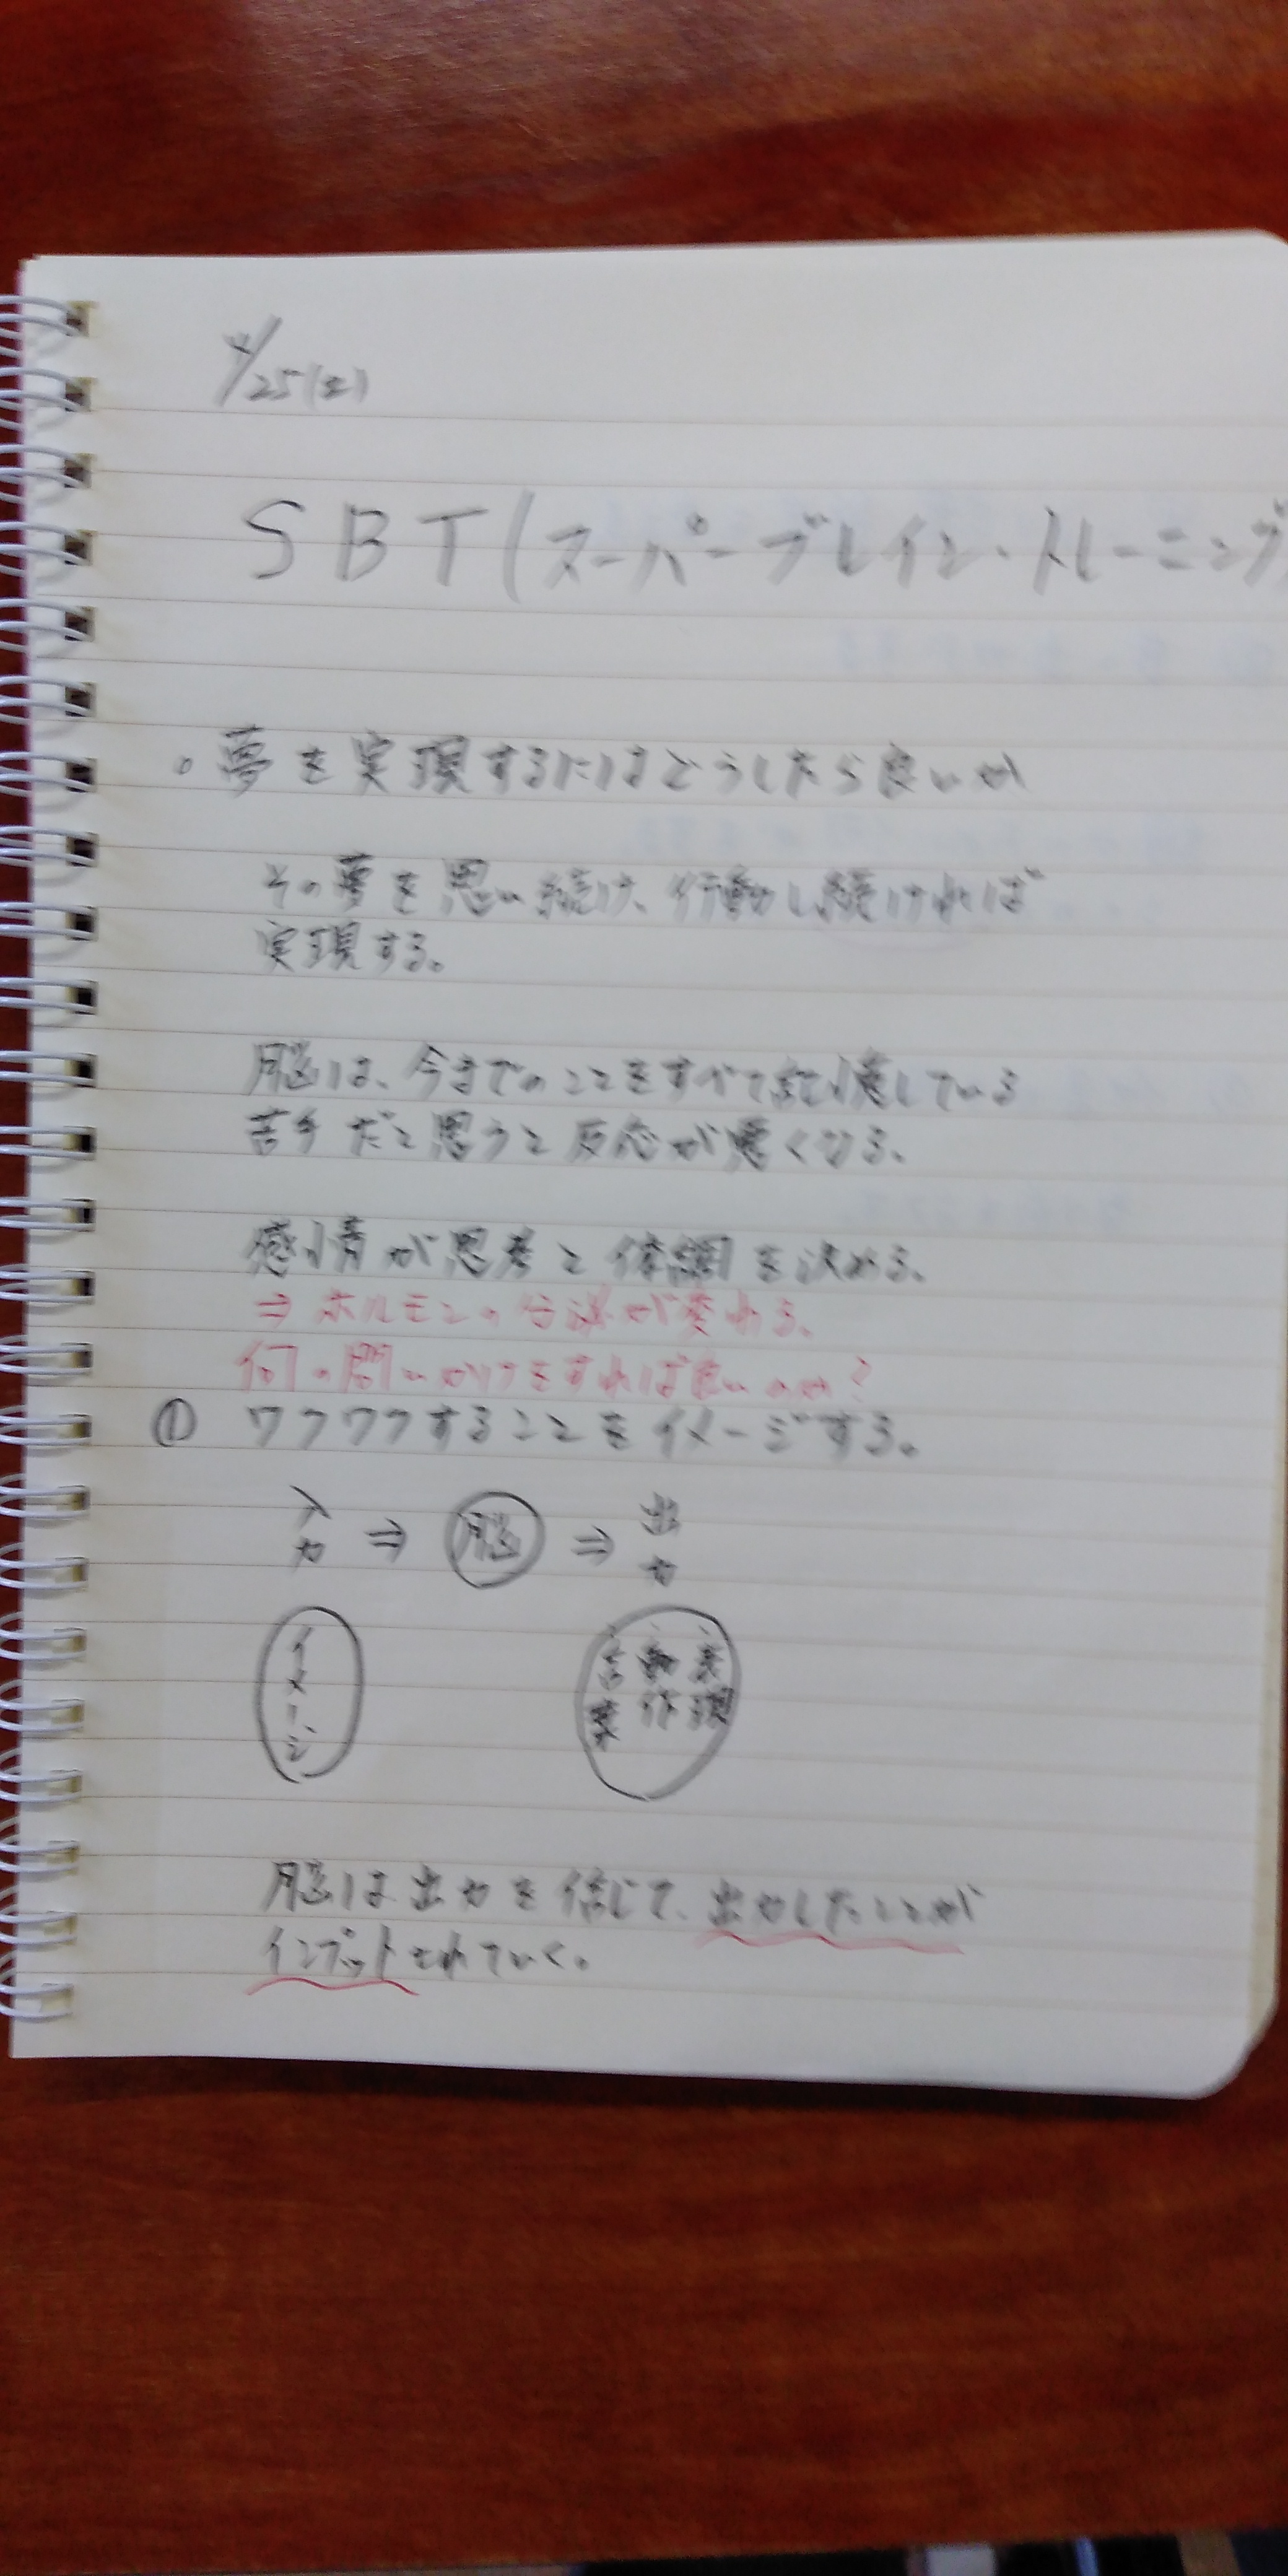 4/25(土)
SBT(スーパーブレイン・トレーニング)
。夢を実現するにはどうしたら良いか
その夢を思い続け、行動し続ければ
実現する。
脳は、今までのことをすべて記憶している
苦手だと思うと反応が悪くなる。
感情が思考と体調を決める。
⇒ホルモンの分泌が変わる。
何の問いかけをすれば良いのか?
① ワクワクすることをイメージする。
入力 ⇒ 脳 ⇒ 出力
イメージ
・言葉 ・動作 ・表現
脳は出力を信じて、出力したことが
インプットされていく。